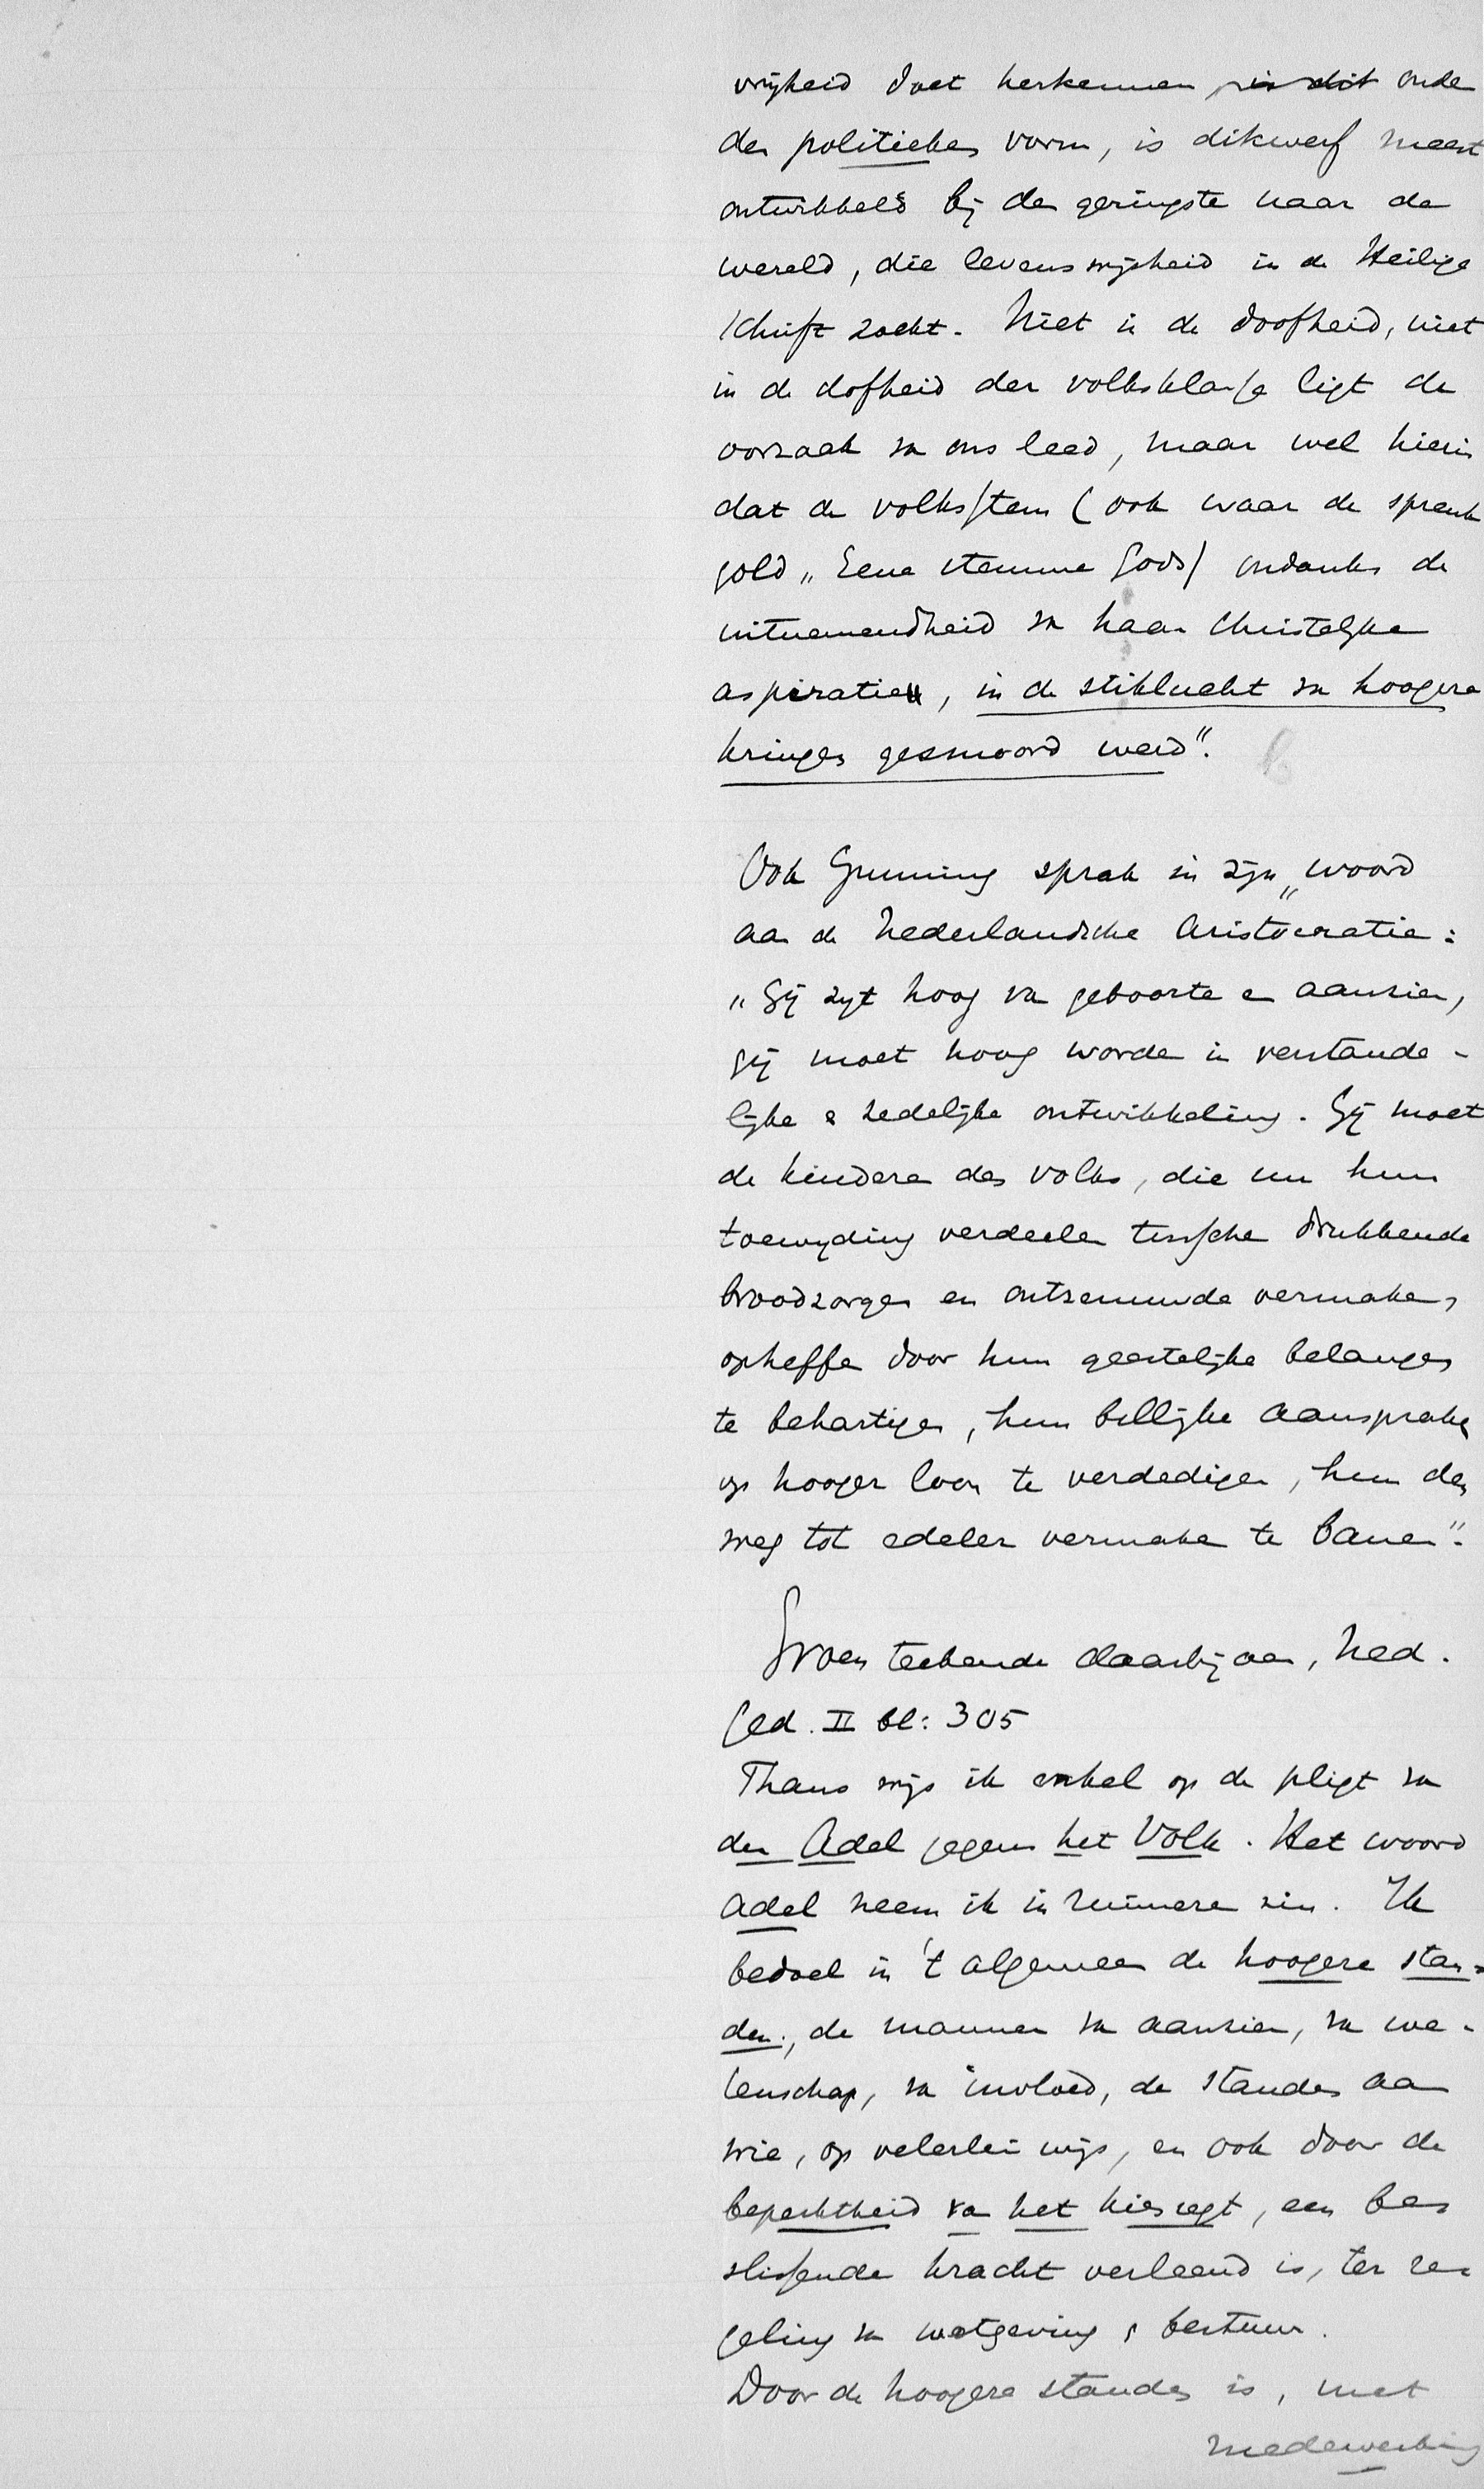 vrijheid doet herkennen, in dit onde
den politieken vorm, is dikwerf meest
ontwikkeld bij den geringste naar de
wereld, die levenswijsheid in de Heilige
Schrift zocht. Niet in de doofheid, niet
in de dofheid der volksklasse ligt de
oorzaak van ons leed, maar wel hierin
dat de volksstem (ook waar de spreuk
gold „Eene stemme Gods) ondanks de
uitnemendheid van haar Christelijke
aspiratien, in de stiklucht van hoogere
kringen gesmoord werd".
Ook Gunning sprak in zijn „woord
aan de Nederlandsche Aristocratie:
„Gij zijt hoog van geboorte en aanzien,
gij moet hoog worden in verstande-
lijke & zedelijke ontwikkeling. Gij moet
de kinderen des volks, die nu hun
toewijding verdeelen tusschen drukkende
broodzorgen en ontzenuwde vermaken,
opheffen door hun geestelijke belangen
te behartigen, hun billijke aanspraken
op hooger loon te verdedigen, hun den
weg tot edeler vermaken te banen".
Groen teekende daarbij aan, Ned.
Ged. II bl: 305
Thans wijs ik enkel op de pligt van
den Adel jegens het Volk. Het woord
Adel neem ik in ruimeren zin. Ik
bedoel in 't algemeen de hoogere stan=
den, de mannen van aanzien, van we-
tenschap, van invloed, de standen aan
wie, op velerlei wijs, en ook door de
beperktheid van het kiesregt, een bes
slissende kracht verleend is, ter re-
geling van wetgeving & bestuur.
Door de hoogere standen is, met
medewerking